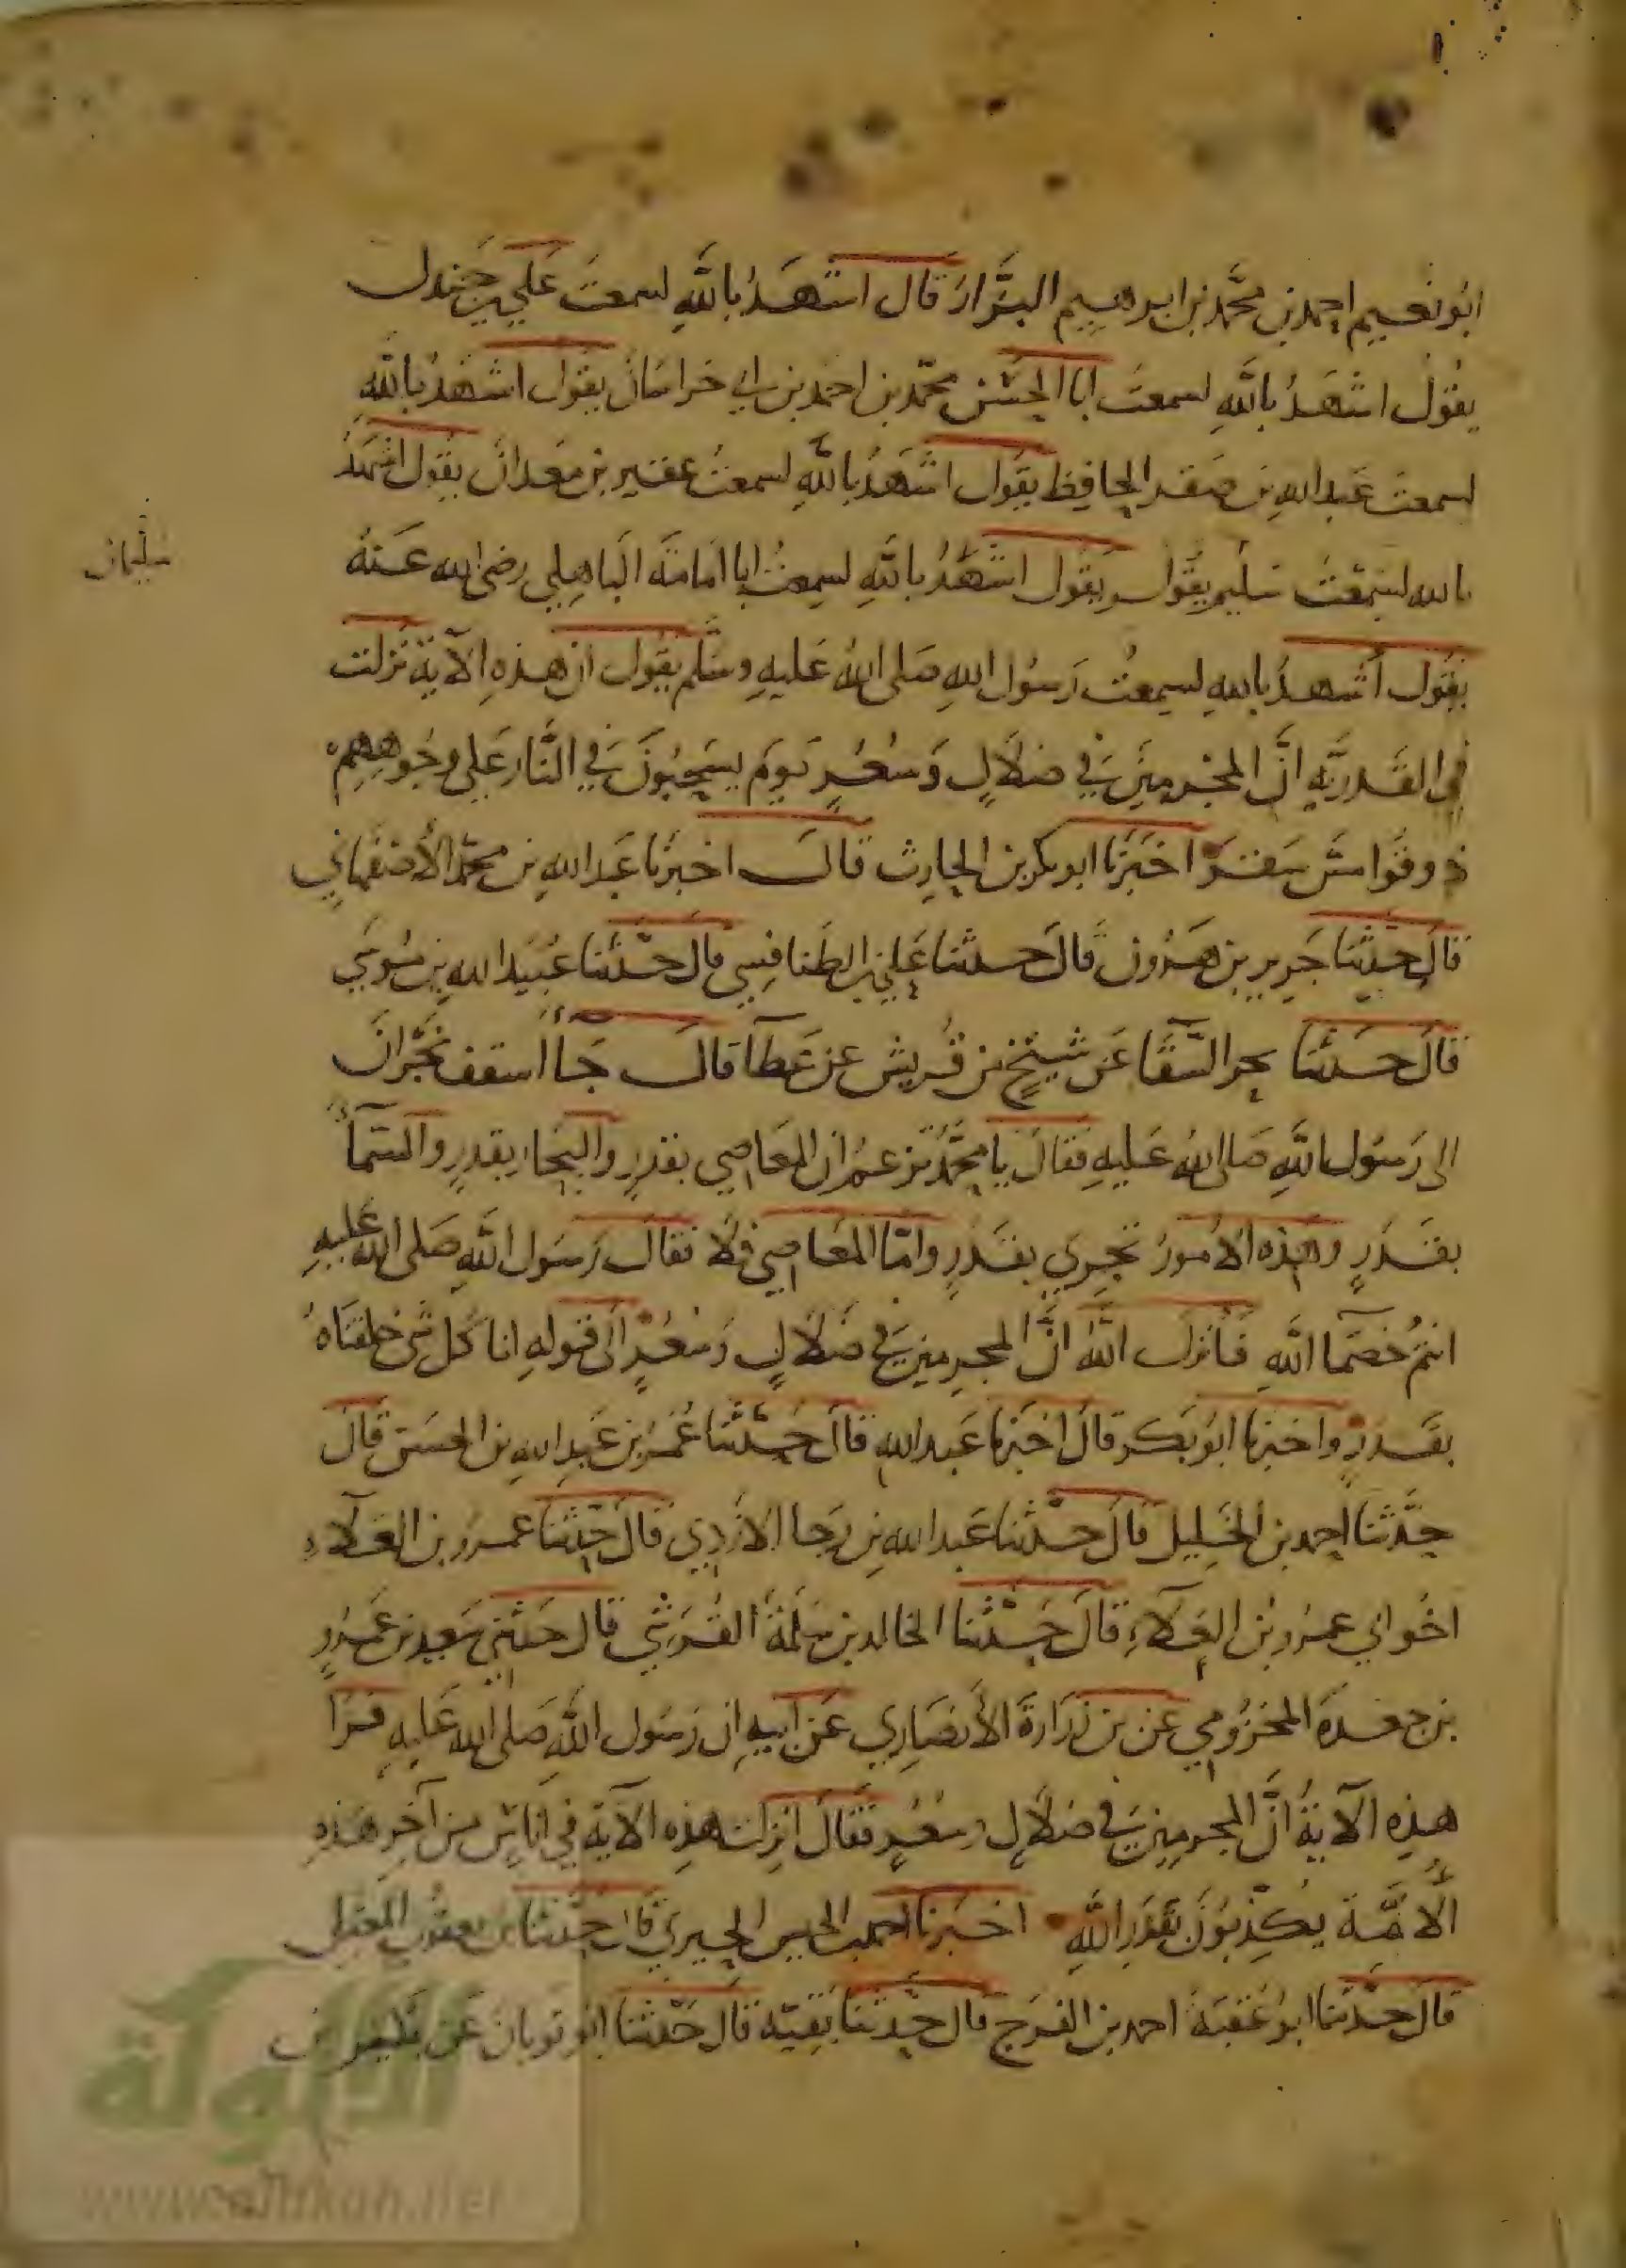 ابُو نعيم احمد بن محمَّد بن ابرهيم البَّزار قال اشهَدُ بالله لسمعتُ علي بن جَندل
يقُولُ اشهَدُ باللهِ لسمعتُ ابا الحسَن محمّد بن احمد بن ابي خراسان يقول اشهدُ بالله
لسمعتُ عَبد اللهِ بن صَقر الحافِظ يقول اشهَدُ بالله لسمعتُ عفير بن معدان يقول اشهَدُ
بالله لسَمِعْتُ سليم يقول يقول اشهَدُ باللهِ لسمعتُ ابا امَامَة البَاهِلي رضى الله عَنهُ
يقول أشهدُ باللهِ لسمِعتُ رَسُول اللهِ صَلى اللهُ عَليهِ وسَّلم يقُول ان هذهِ الآية نزلت
في القَدريَّهِ انَّ المجْرمينَ في ضلَالٍ وَسُعُرٍ يَومَ يسحَبُونَ في النَّار عَلى وجُوههِمْ
ذوقوا مسَّ سَقَرَ اخبَرَنا ابو بكر بن الحارث قالَ اخبرَنا عَبد اللهِ بن محمَّد الأصْفَهاني
قالَ حدّثنا جَرير بن هَرُون قالَ حدثنا عَلي بن الطنافسِي قال حَدّثنا عُبَيد الله بن مُوسَى
قالَ حدّثنا بحر السَّقا عَن شيخٍ من قُريش عن عَطآ قالَ جَآ أسقف نجرَانَ
الى رَسُول اللهِ صَلى اللهُ عَليهِ فقالَ يا محَمّدُ تزعمُ ان المعَاصي بقدرٍ والبحَار بقدرٍ والسَّمآء
بقَدَرٍ وهذه الامُورُ تجري بقَدَرٍ وامّا المعَاصِي فلَا فقالَ رَسُول اللهِ صَلى الله عَليهِ
انتمُ خُصَمآ اللهِ فَانزلَ اللهُ انَّ المجرمين في ضَلَالٍ وَسُعُرٍ الَى قولهِ انا كُل شَى خلقنَاهُ
بقَدَرٍ واخبرَنا ابُو بَكر قالَ اخبَرنا عَبد اللهِ قالَ حَدّثنا عُمَرُ بن عَبد اللهِ بن الحسَن قال
حدَّثنا احمد بن الخَليل قالَ حدّثنا عَبد الله بن رَجا الازدِي قالَ حدّثنا عمرو بن العَلَاءِ
اخُو ابي عمرو بن العَلَاءِ قالَ حَدّثنا الخالد بن سَلمَةَ القُرَشي قالَ حَدّثني سَعيد بن عَمرٍو
بن جَعدَة المخزُومي عَن بن زُرارَةَ الأنصَاري عَن ابيهِ ان رَسُول اللهِ صَلى الله عَليهِ قرَا
هذِهِ الآيةُ انَّ المجرمين في ضلَالٍ وسُعُرٍ فقالَ انزلت هذِهِ الآية في انَاسٍ من آخِرِ هَذهِ
الأمَّة يُكذّبُونَ بقدَرِ اللهِ اخبَرنا احمد بن الحسن الحيري قال حدّثنا بن يعقوب المعقلي
قالَ حدّثنا ابُو عُقبَة احمد بن الفَرَج قالَ حدّثنا بَقيّة قالَ حَدّثنا ابن ثوبان عَن
سُليمان
الألوكة
www.alukah.net